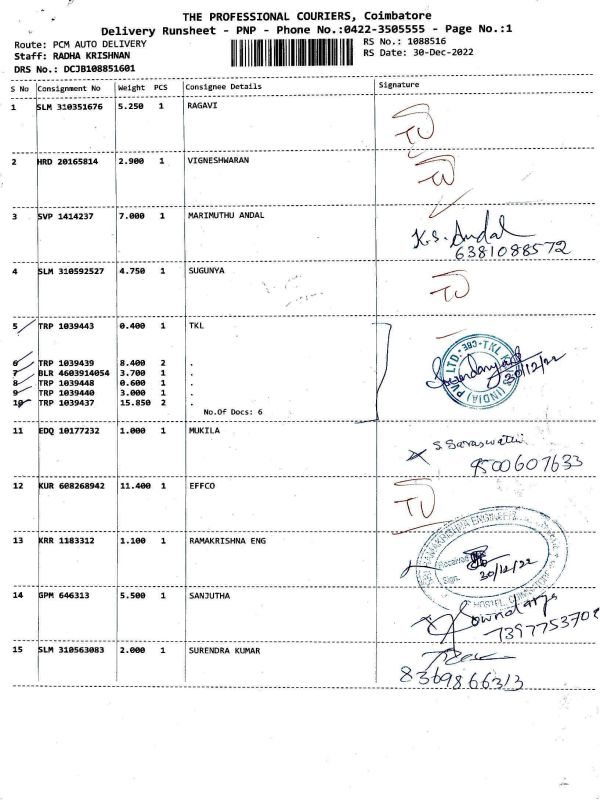 THE PROFESSIONAL COURIERS, Coimbatore
Delivery Runsheet - PNP - Phone No.:0422-3505555 - Page No.:1
Route: PCM AUTO DELIVERY
RS No.: 1088516
Staff: RADHA KRISHNAN
RS Date: 30-Dec-2022
DRS No.: DCJB108851601
S No Consignment No Weight PCS Consignee Details Signature
1 SLM 310351676 5.250 1 RAGAVI
2 HRD 20165814 2.900 1 VIGNESHWARAN
3 SVP 1414237 7.000 1 MARIMUTHU ANDAL
K.S. Andal
6381088572
4 SLM 310592527 4.750 1 SUGUNYA
5 TRP 1039443 0.400 1 TKL
6 TRP 1039439 8.400 2 .
7 BLR 4603914054 3.700 1 .
8 TRP 1039448 0.600 1 .
9 TRP 1039440 3.000 1 .
10 TRP 1039437 15.850 2 .
30/12/22
No.Of Docs: 6
11 EDQ 10177232 1.000 1 MUKILA
S. Saraswathi
9500607633
12 KUR 608268942 11.400 1 EFFCO
13 KRR 1183312 1.100 1 RAMAKRISHNA ENG
30/12/22
14 GPM 646313 5.500 1 SANJUTHA
15 SLM 310563083 2.000 1 SURENDRA KUMAR
8369866313